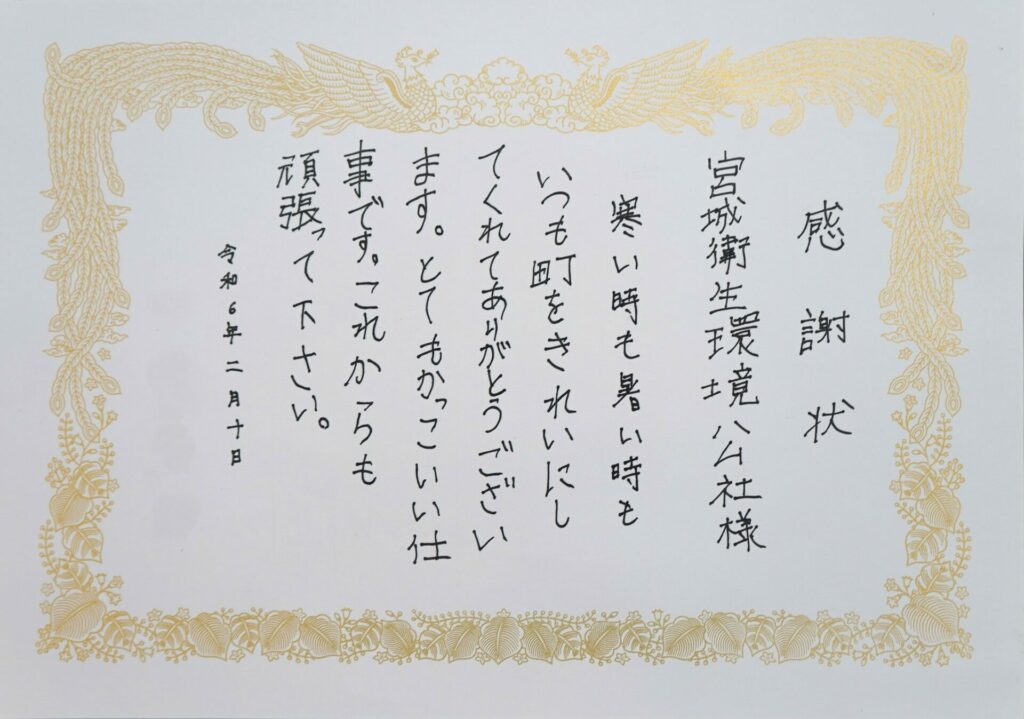 感謝状
宮城衛生環境公社様
寒い時も暑い時も
いつも町をきれいにし
てくれてありがとうござい
ます。とてもかっこいい仕
事です。これからも
頑張って下さい。
令和6年二月十日